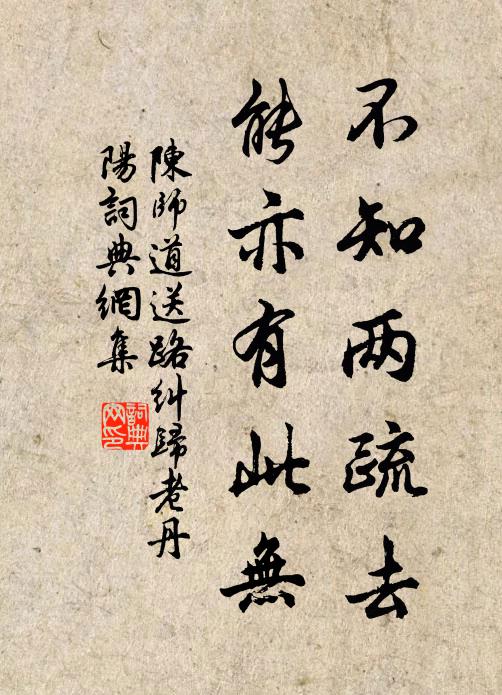 不知两疏去
能亦有此無
陳師道送路糾歸老丹
陽詞典網集
詞典网印